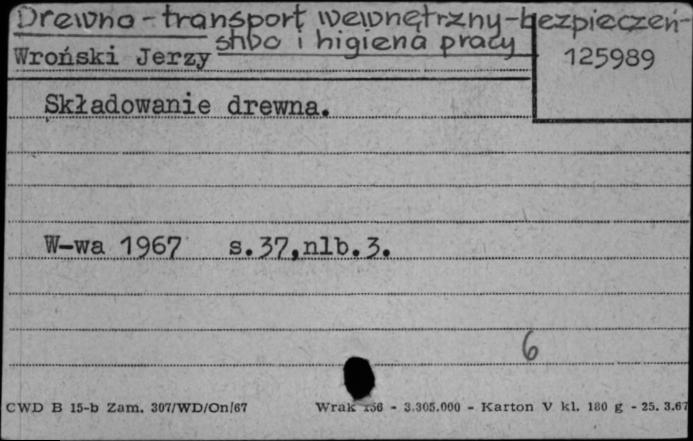 Drewno - transport wewnętrzny - bezpieczeń-
stwo i higiena pracy
Wroński Jerzy
125989
Składowanie drewna.
W-wa 1967 s.37,nlb.3.
6
CWD B 15-b Zam. 307/WD/On/67 Wrak 156 - 3.305.000 - Karton V kl. 180 g - 25. 3.67